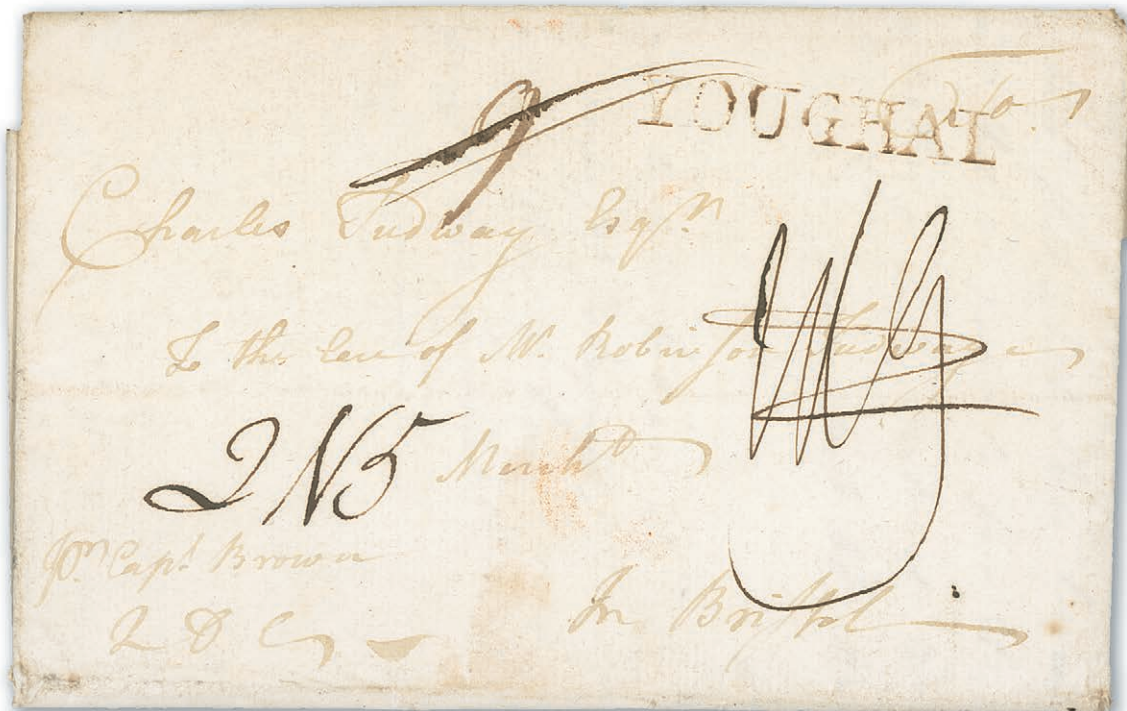 9
YOUGHAL
Charles Tudway Esqr.
To the Care of Mr. Robinson Tudway
Mercht
2 N5
Pr. Capt. Brown
2 D C
In Bristol